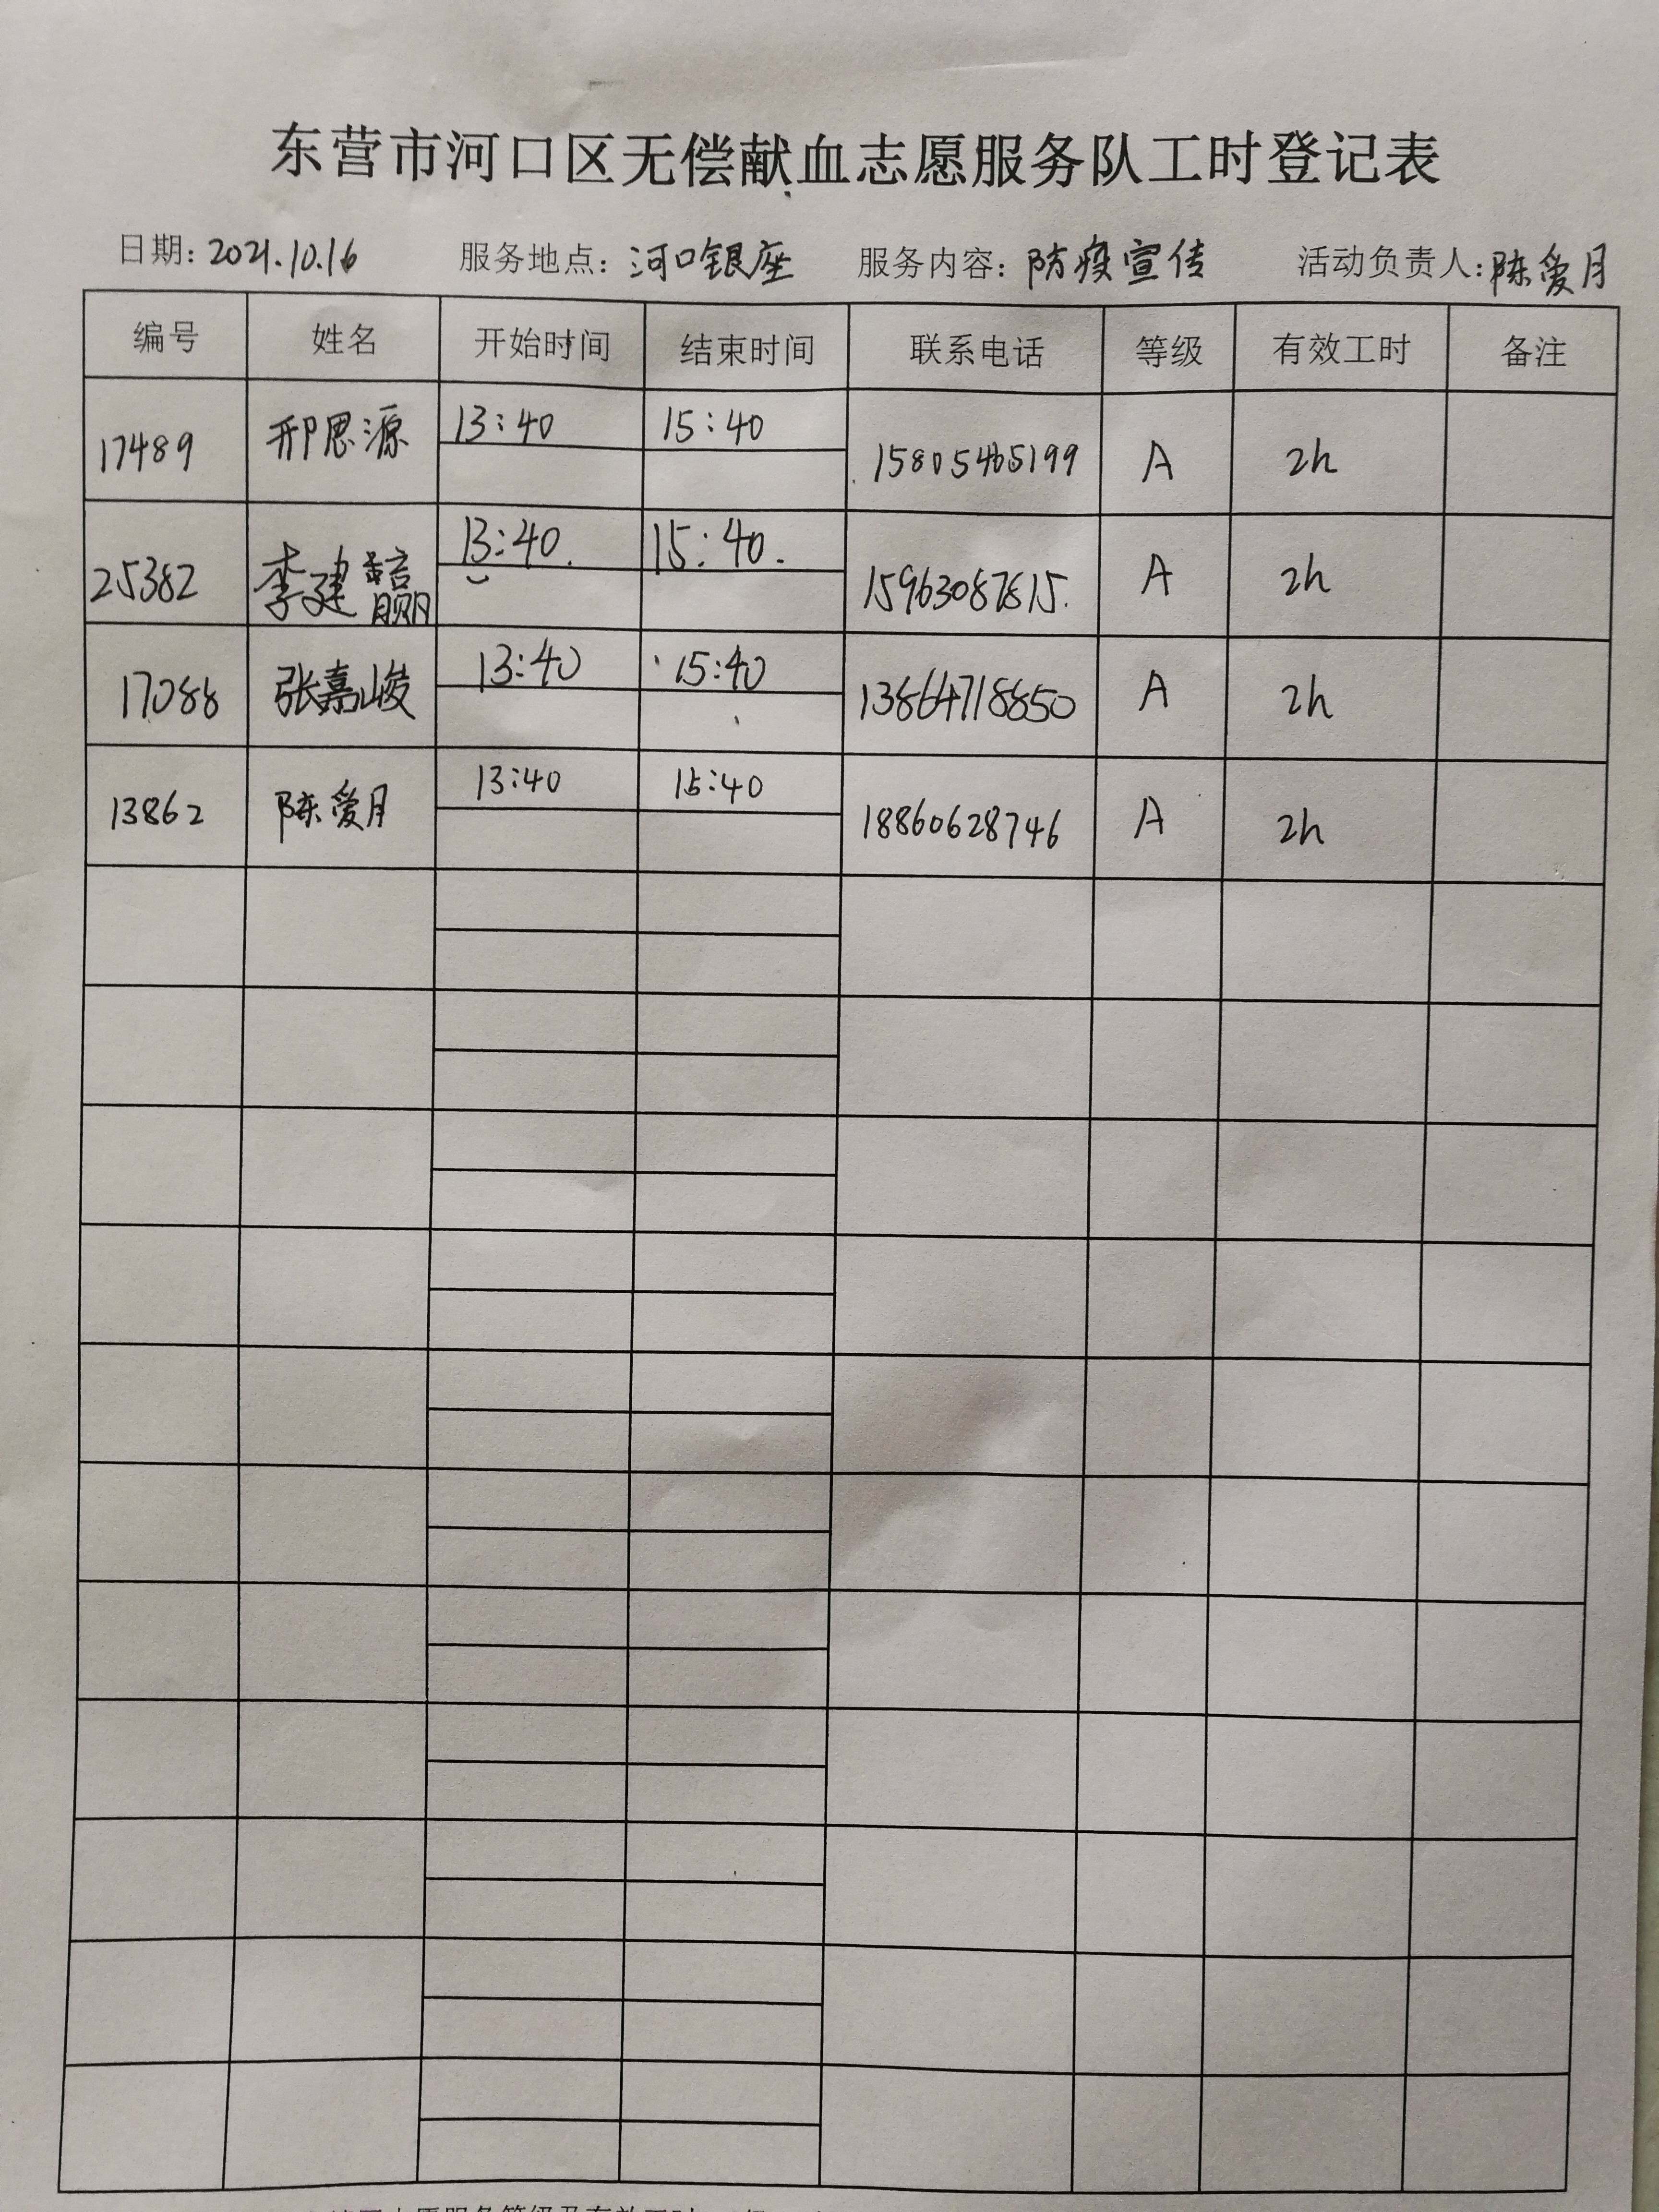 东营市河口区无偿献血志愿服务队工时登记表
日期: 2021.10.16 服务地点: 河口银座 服务内容: 防疫宣传 活动负责人: 陈爱月
编号 姓名 开始时间 结束时间 联系电话 等级 有效工时 备注
17489 邢思源 13:40 15:40 15805465199 A 2h
25382 李建赢 13:40. 15:40. 15963087815. A 2h
17088 张嘉峻 13:40 15:40 13864718850 A 2h
13862 陈爱月 13:40 15:40 18860628746 A 2h